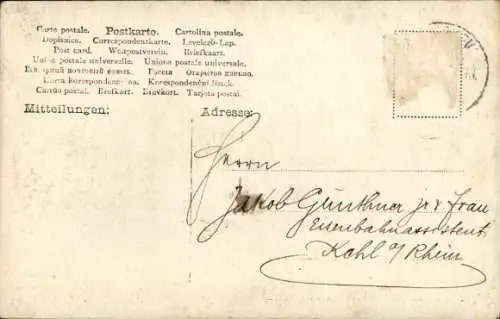 Carte postale. Postkarte. Cartolina postale.
Dopisnice. Correspondenzkarte. Levelező-Lap.
Post card. Weltpostverein. Briefkaart.
Union postale universelle. Unione postale universale.
Россiя Открытое письмо.
Karta korespondencyjna. Korespondenční lístek.
Cartão postal. Brefkort. Brevkort. Tarjeta postal.
Mitteilungen: Adresse:
Herrn
Jakob Günthner jr & Frau
Eisenbahnassistent
Kehl a/Rhein